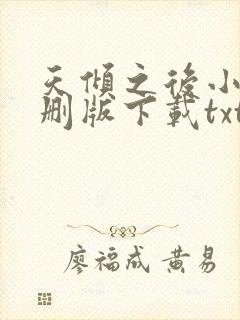 天傾之後小
刪版下載txt
廖福成 黄易